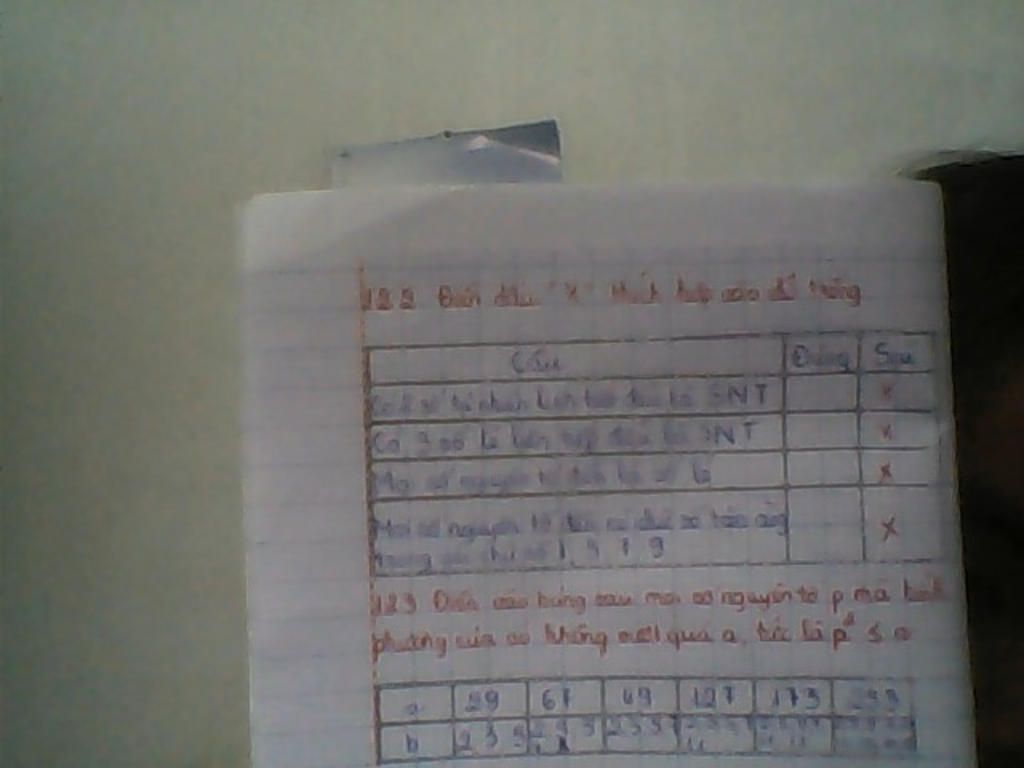 122 Điền dấu "X" thích hợp vào để trống
Câu Đúng Sai
Có 2 số tự nhiên liên tiếp đều là SNT X
Có 3 số lẻ liên tiếp đều là SNT X
Mọi số nguyên tố đều là số lẻ X
Mọi số nguyên tố đều có chữ số tận cùng X
trong các chữ số 1, 3, 7, 9
123 Điền vào bảng sau mọi số nguyên tố p mà bình
phương của nó không vượt quá a, tức là p² ≤ a
a 29 67 49 127 173 253
2 3 5 2 3 5 2 3 5